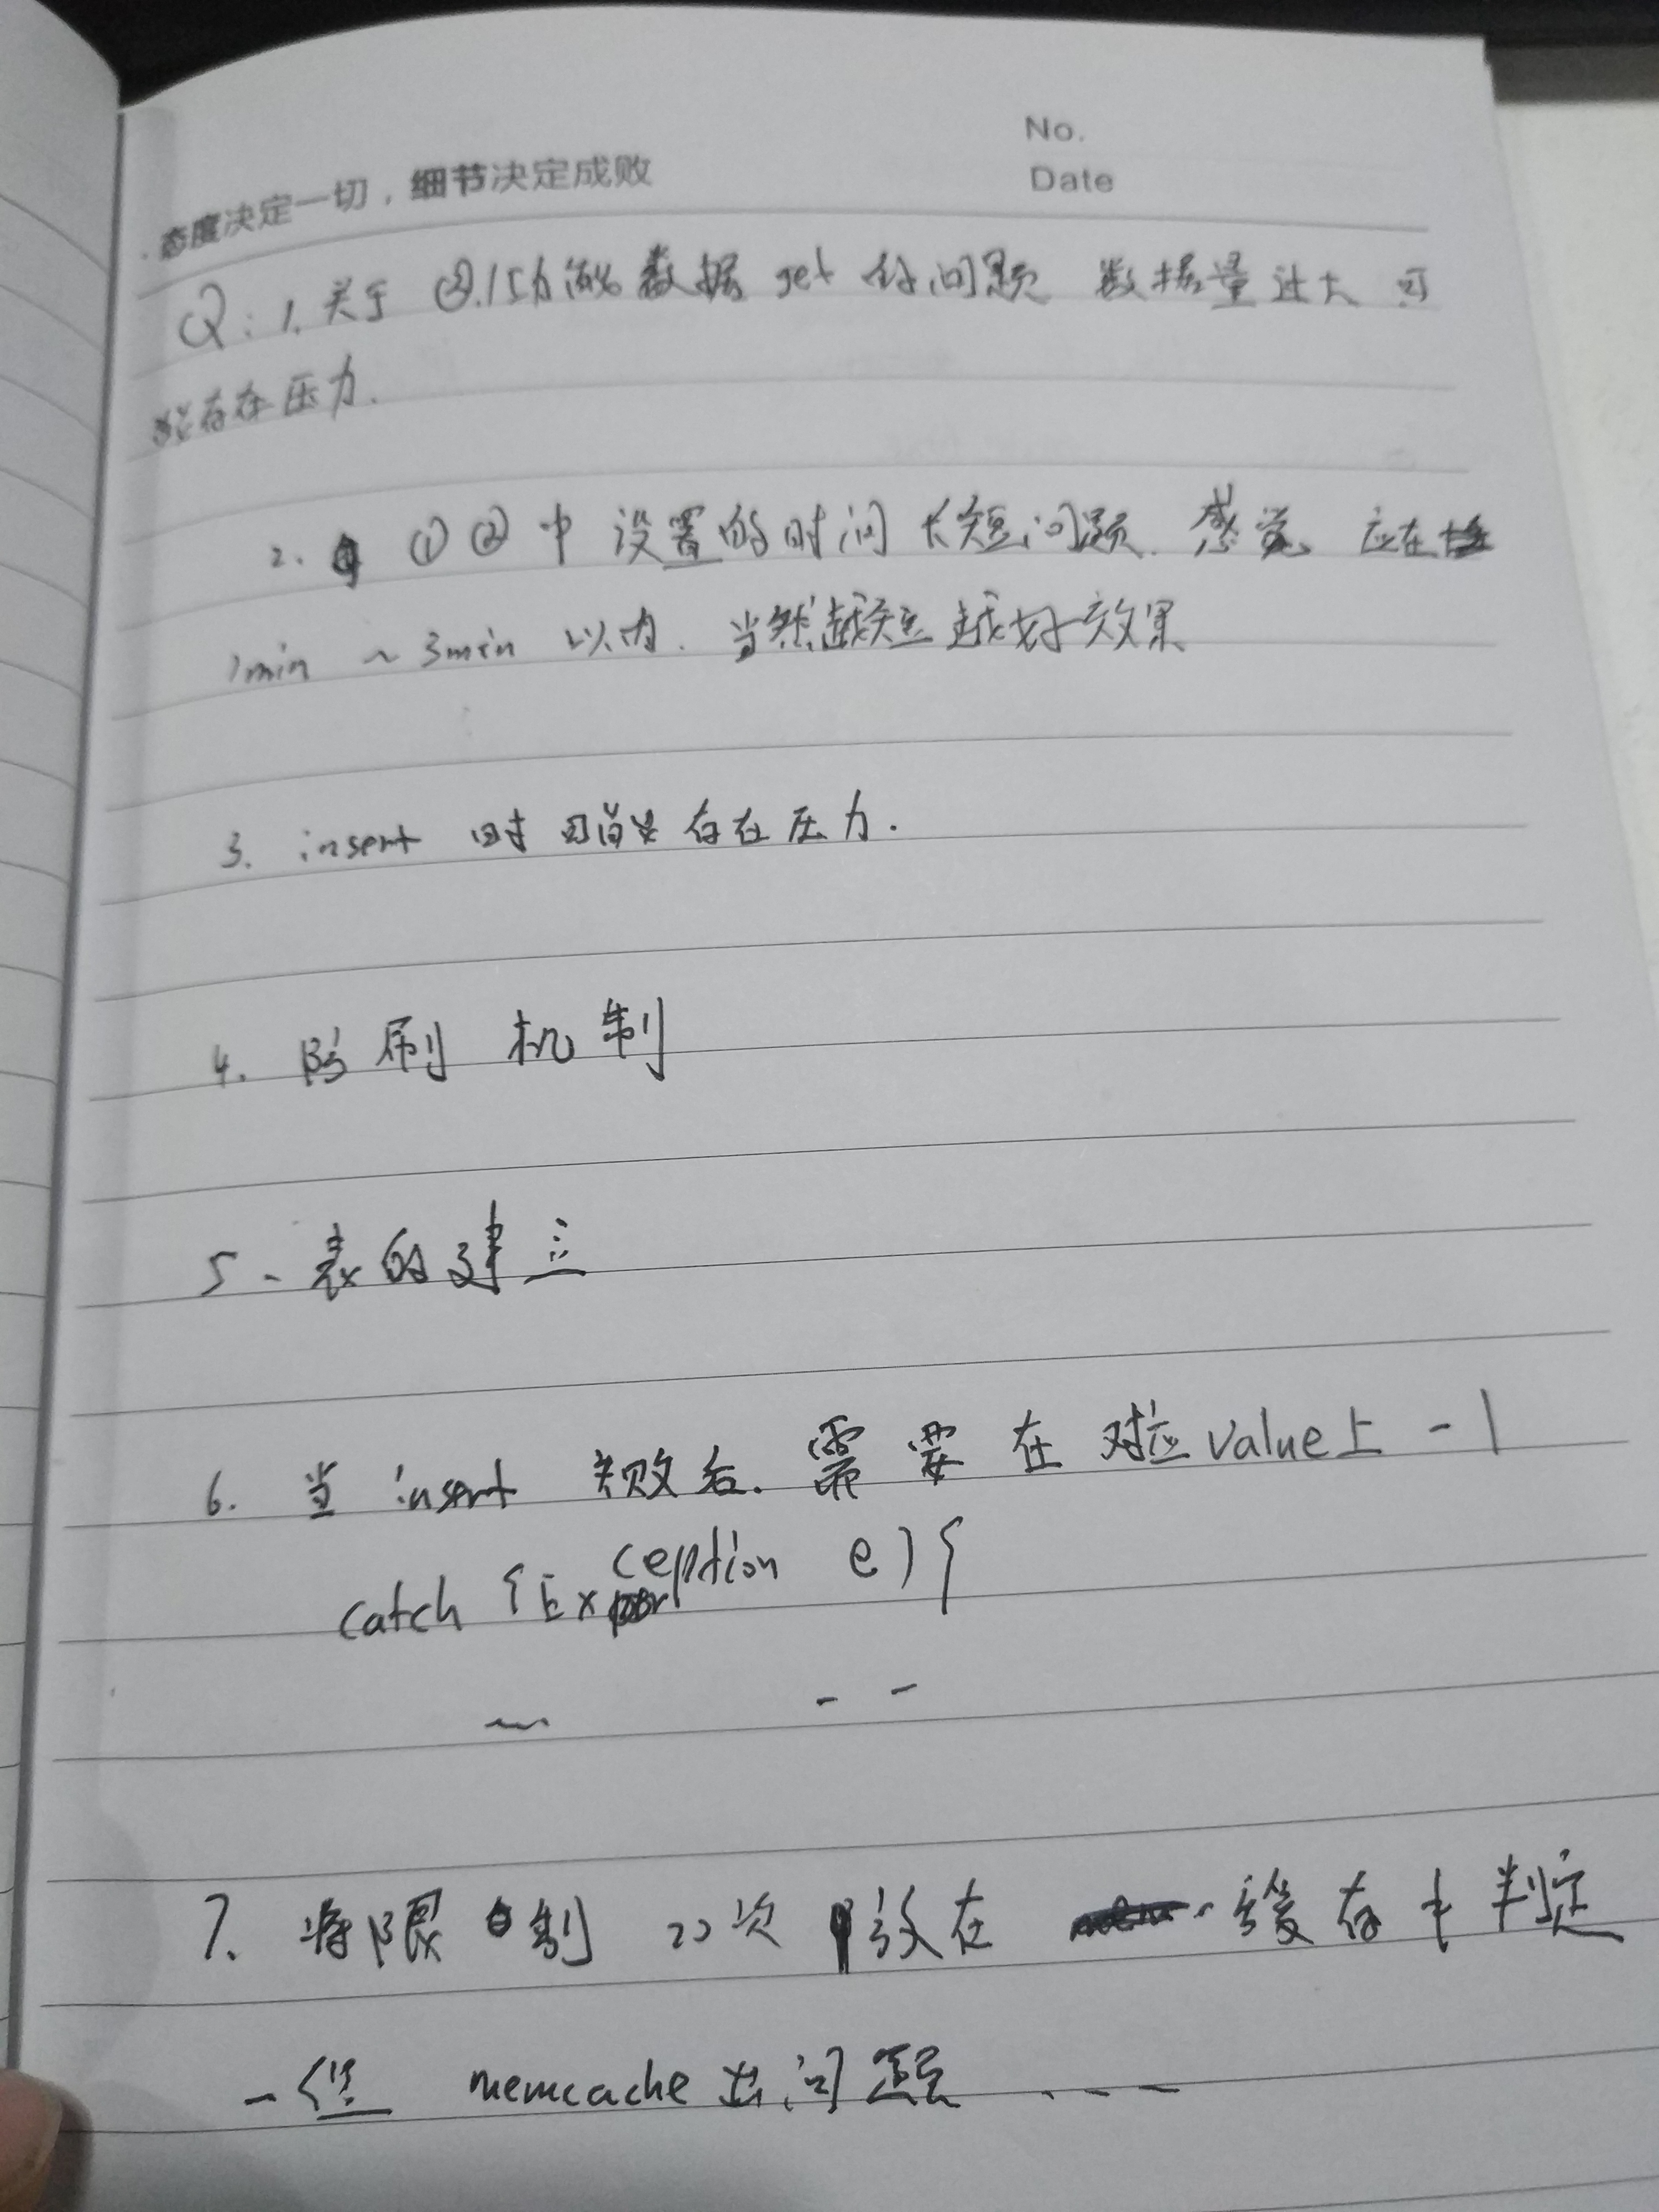 No.
Date
态度决定一切，细节决定成败
Q：1. 关于 数据 get 的问题 数据量过大 可
能存在压力.
2. ①② 中 设置的时间长短问题. 感觉 应在
1min ~ 3min 以内. 当然越短越好效果
3. insert 时可能存在压力.
4. 防刷 机制
5、表的建立
6. 当 insert 失败后. 需要在对应value上 -1
catch {Exception e){
7. 将限制 20次 放在 缓存中判定
一但 memcache 出问题 ....